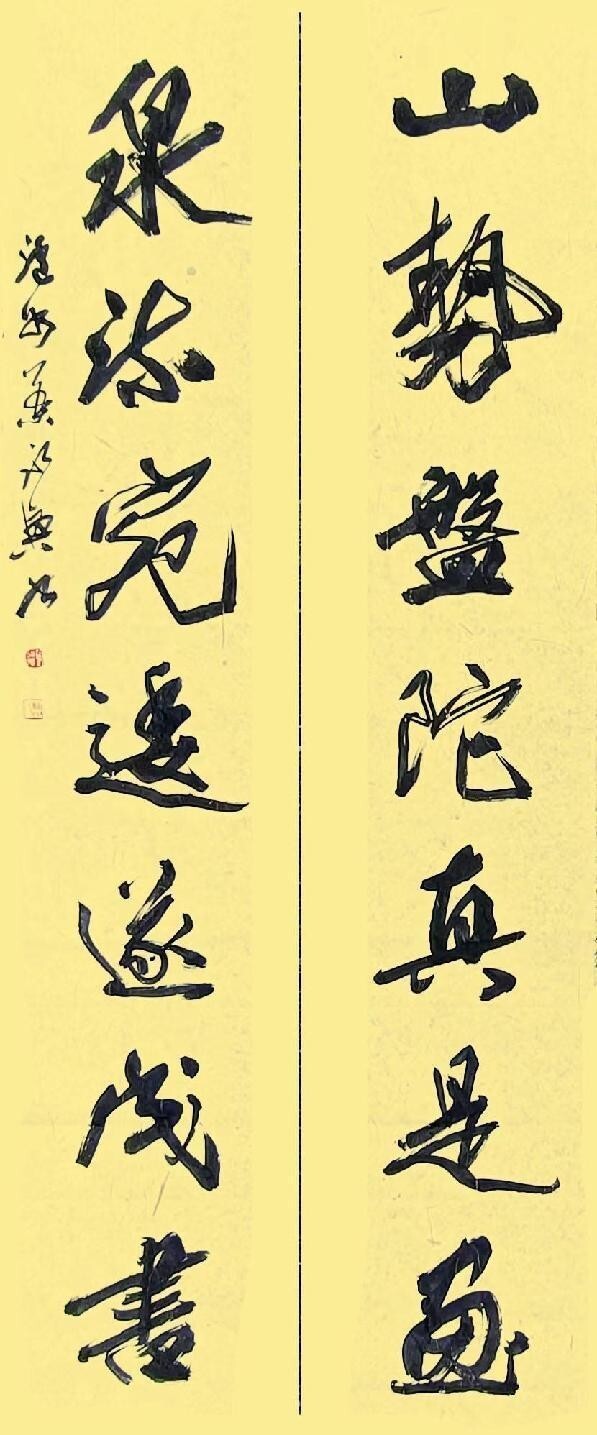 山勢盤陀真是画
泉流宛逶遂成書